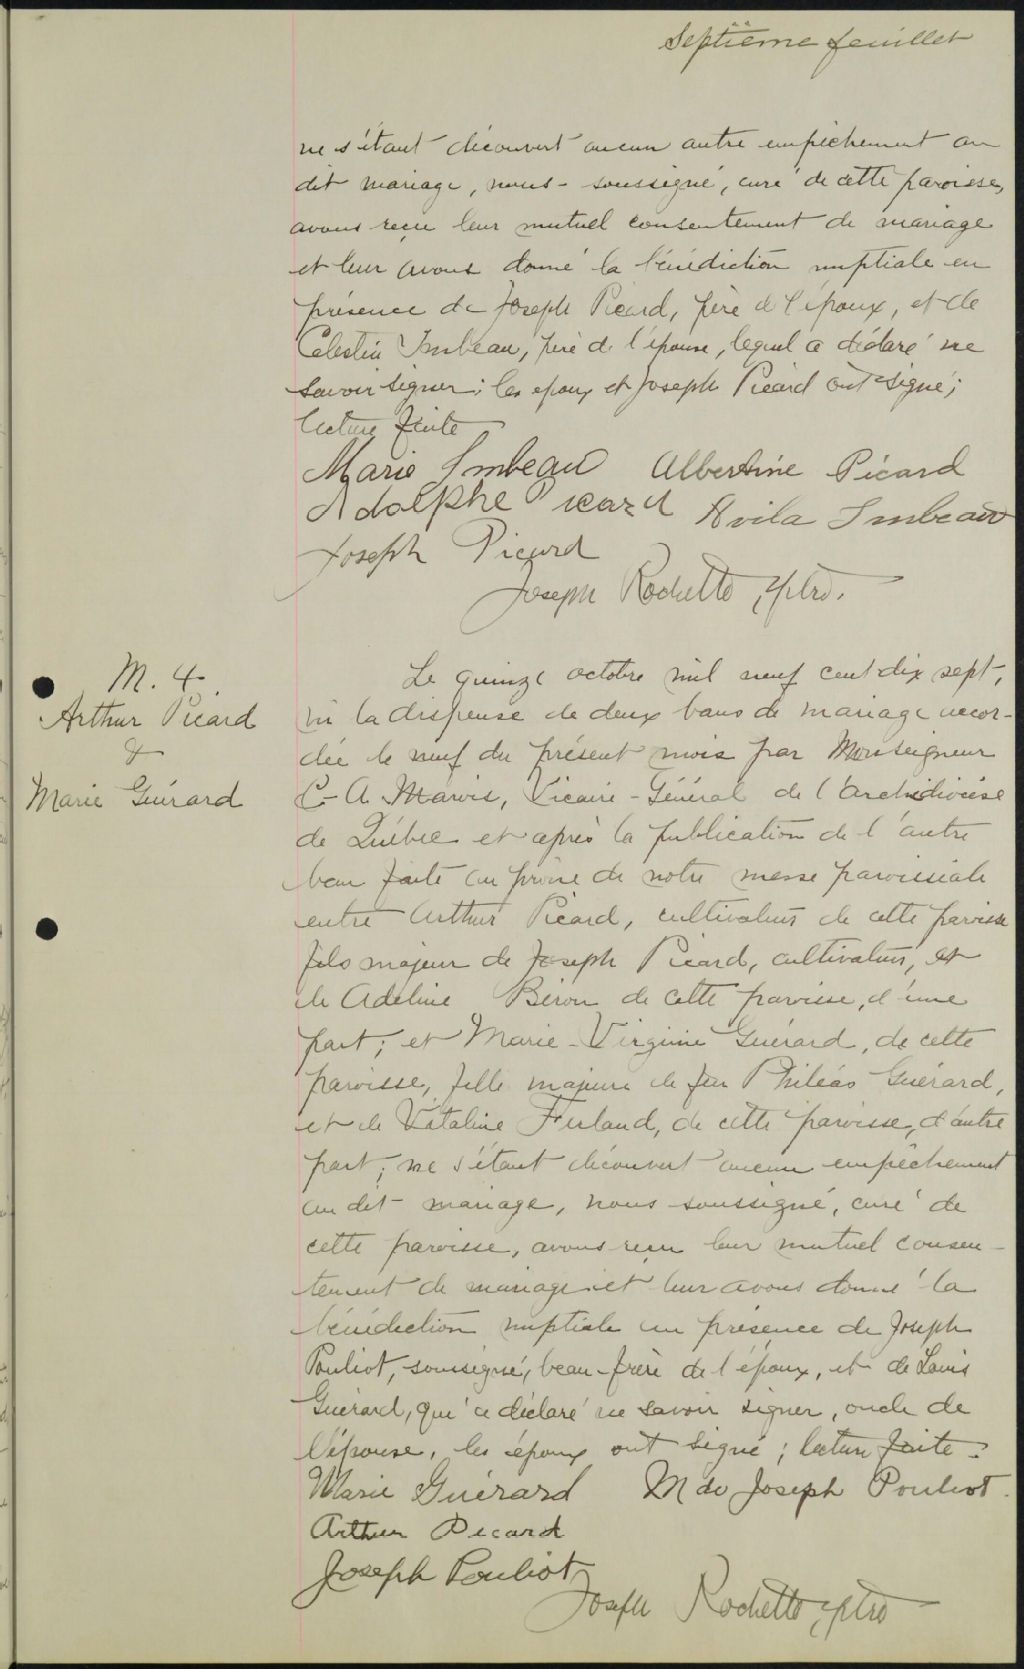 Septième feuillet
ne s'étant découvert aucun autre empêchement au
dit mariage, nous - soussigné, curé de cette paroisse,
avons reçu leur mutuel consentement de mariage
et leur avons donné la bénédiction nuptiale en
présence de Joseph Picard, père de l'époux, et de
Célestin Imbeau, père de l'épouse, lequel a déclaré ne
savoir signer; les époux et Joseph Picard ont signé;
lecture faite
Marie Imbeau Albertine Picard
Adolphe Picard Avila Imbeau
Joseph Picard
Joseph Rochette, ptre.
M. 4.
Arthur Picard
&
Marie Guérard
Le quinze octobre mil neuf cent dix sept,
vu la dispense de deux bans de mariage accor-
dée le neuf du présent mois par Monseigneur
C-A Marois, Vicaire-Général de l'archidiocèse
de Québec et après la publication de l'autre
ban faite au prône de notre messe paroissiale
entre Arthur Picard, cultivateur de cette paroisse
fils majeur de Joseph Picard, cultivateur, et
de Adeline Biron de cette paroisse, d'une
part; et Marie-Virginie Guérard, de cette
paroisse, fille majeure de feu Philéas Guérard,
et de Vitaline Ferland, de cette paroisse, d'autre
part; ne s'étant découvert aucun empêchement
au dit mariage, nous soussigné, curé de
cette paroisse, avons reçu leur mutuel consen-
tement de mariage et leur avons donné la
bénédiction nuptiale en présence de Joseph
Pouliot, soussigné, beau-frère de l'époux, et de Louis
Guérard, qui a déclaré ne savoir signer, oncle de
l'épouse, les époux ont signé; lecture faite.
Marie Guérard Mde Joseph Pouliot.
Arthur Picard
Joseph Pouliot
Joseph Rochette, ptre